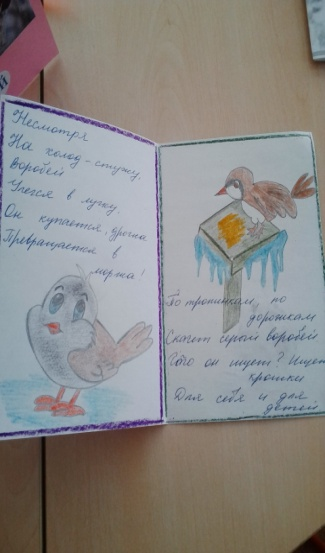 Несмотря
На холод-стужу,
Воробей
Улегся в лужу.
Он купается, урча
Превращается в
моржа!
По тропинкам, по
дорожкам
Скачет серый воробей
Чего он ищет? Ищет
крошки
Для себя и для
детей